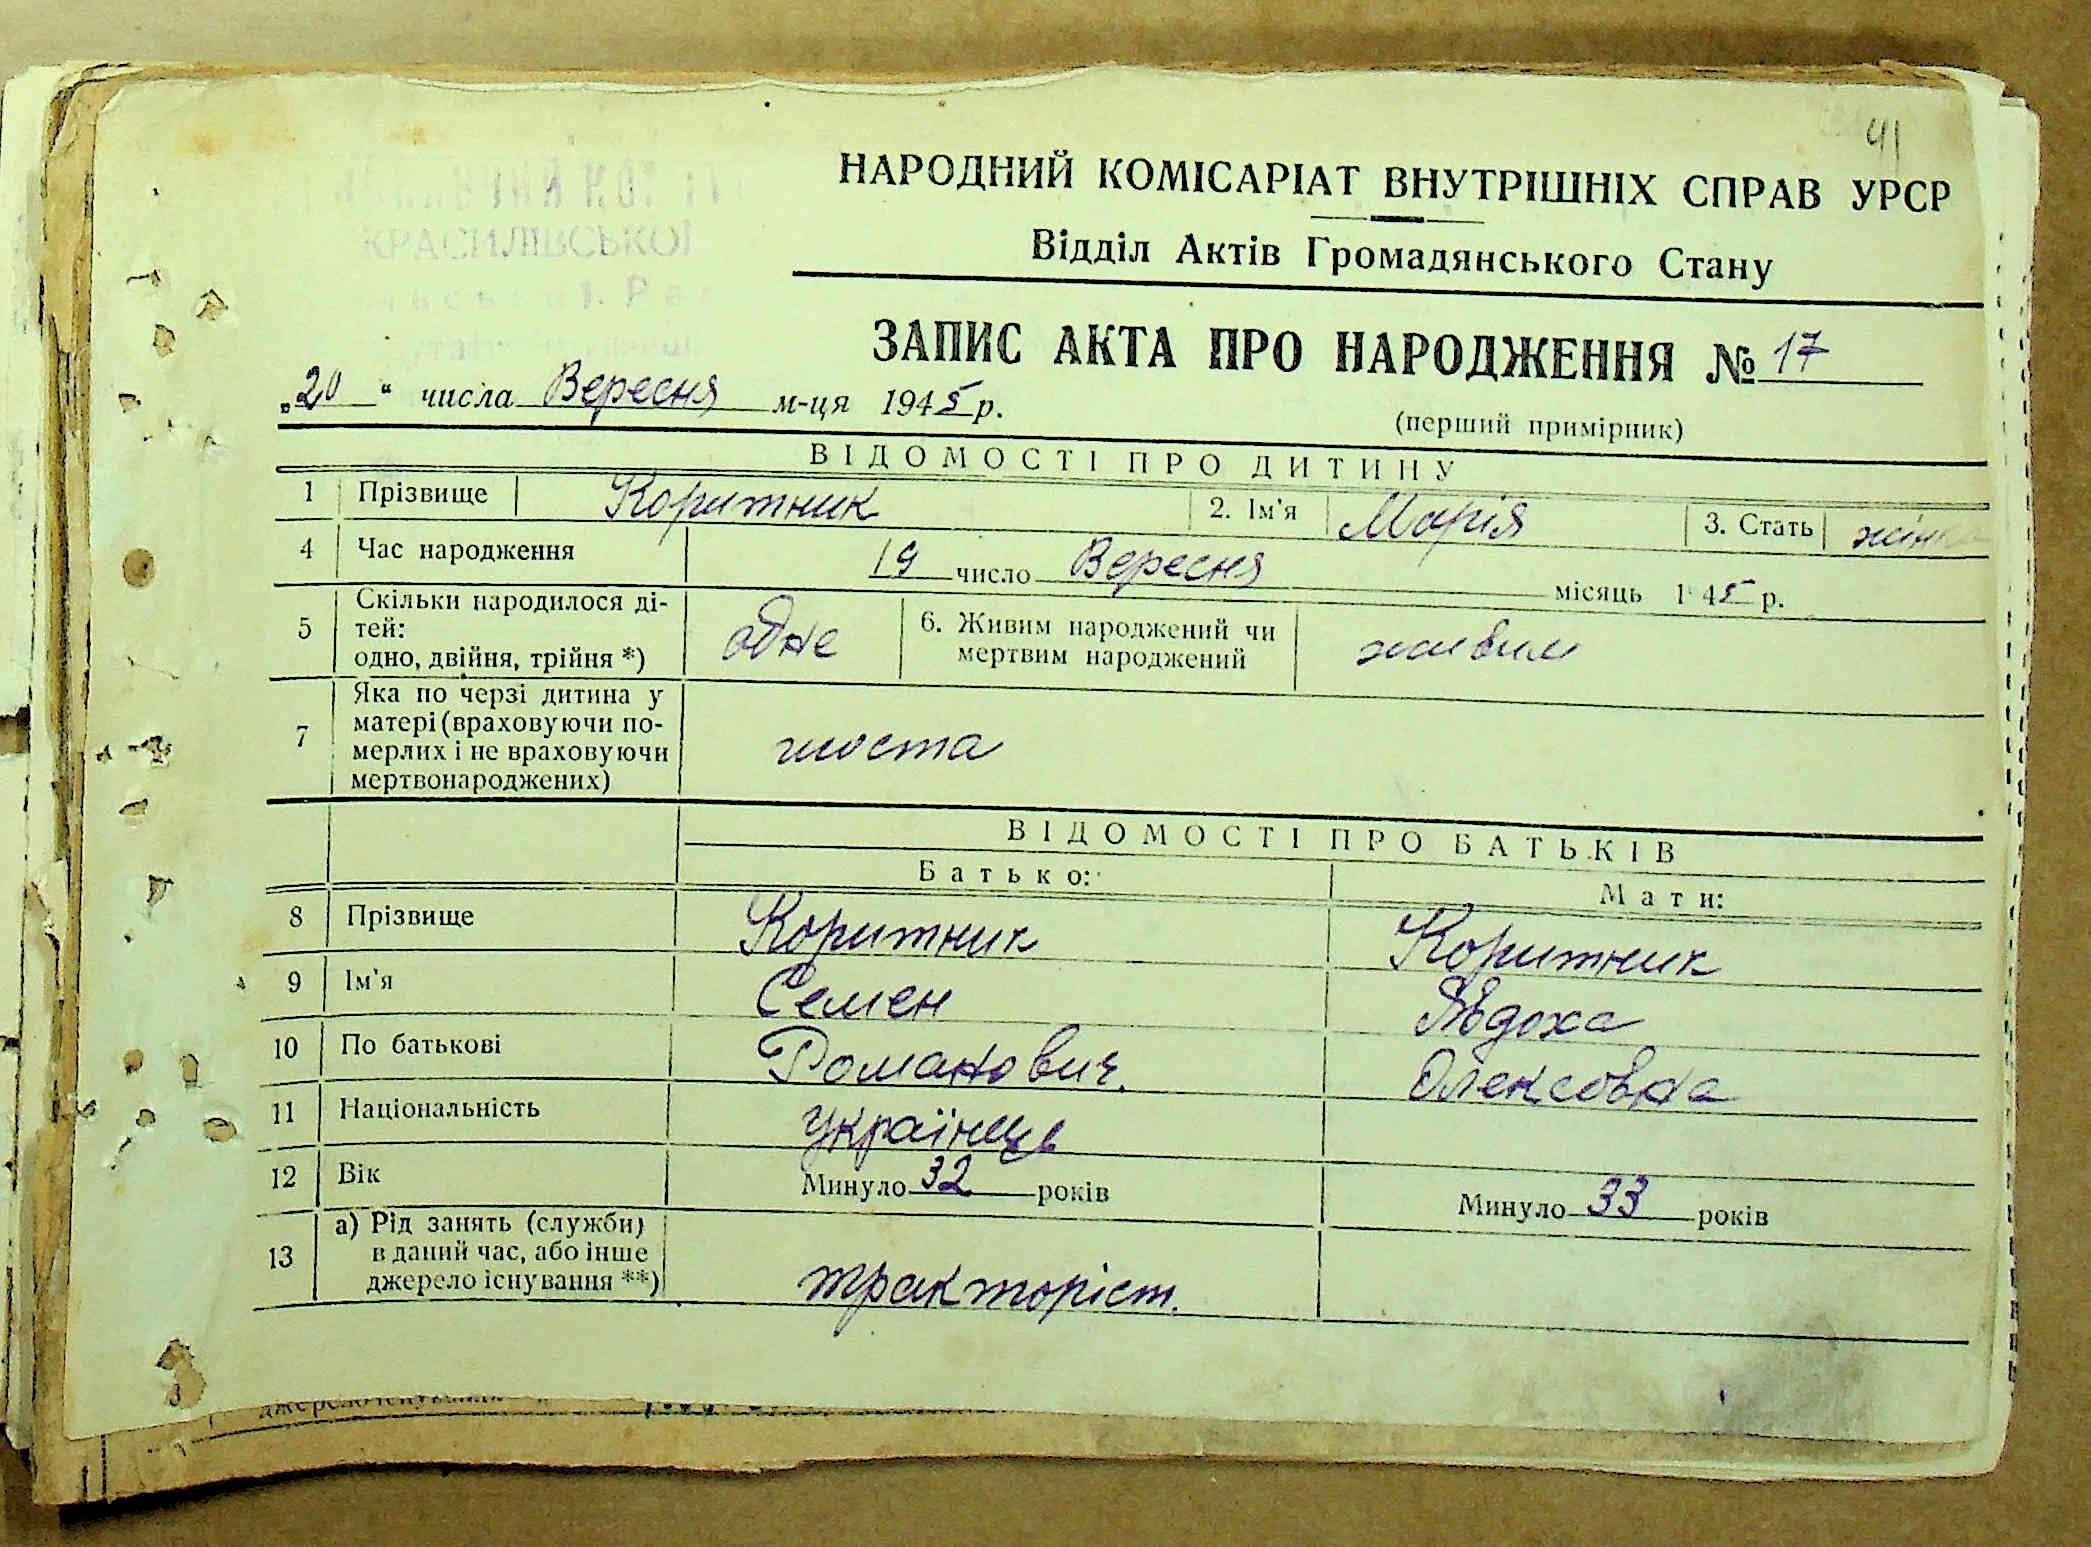 41
НАРОДНИЙ КОМІСАРІАТ ВНУТРІШНІХ СПРАВ УРСР
КРАСИЛІВСЬКОЇ
Відділ Актів Громадянського Стану
ЗАПИС АКТА ПРО НАРОДЖЕННЯ № 17
„20“ числа Вересня м-ця 1945 р.
(перший примірник)
ВІДОМОСТІ ПРО ДИТИНУ
1 Прізвище Коритник 2. Ім'я Марія 3. Стать
4 Час народження 19 число Вересня місяць 1945 р.
5 Скільки народилося ді-
тей:
одно, двійня, трійня *) одне 6. Живим народжений чи
мертвим народжений живим
7 Яка по черзі дитина у
матері (враховуючи по-
мерлих і не враховуючи
мертвонароджених) шоста
ВІДОМОСТІ ПРО БАТЬКІВ
Батько: Мати:
8 Прізвище Коритник Коритник
9 Ім'я Семен Явдоха
10 По батькові Романович. Олексовна
11 Національність Українець
12 Вік Минуло 32 років Минуло 33 років
13 а) Рід занять (служби)
в даний час, або інше
джерело існування **) тракторіст.
джерело існування